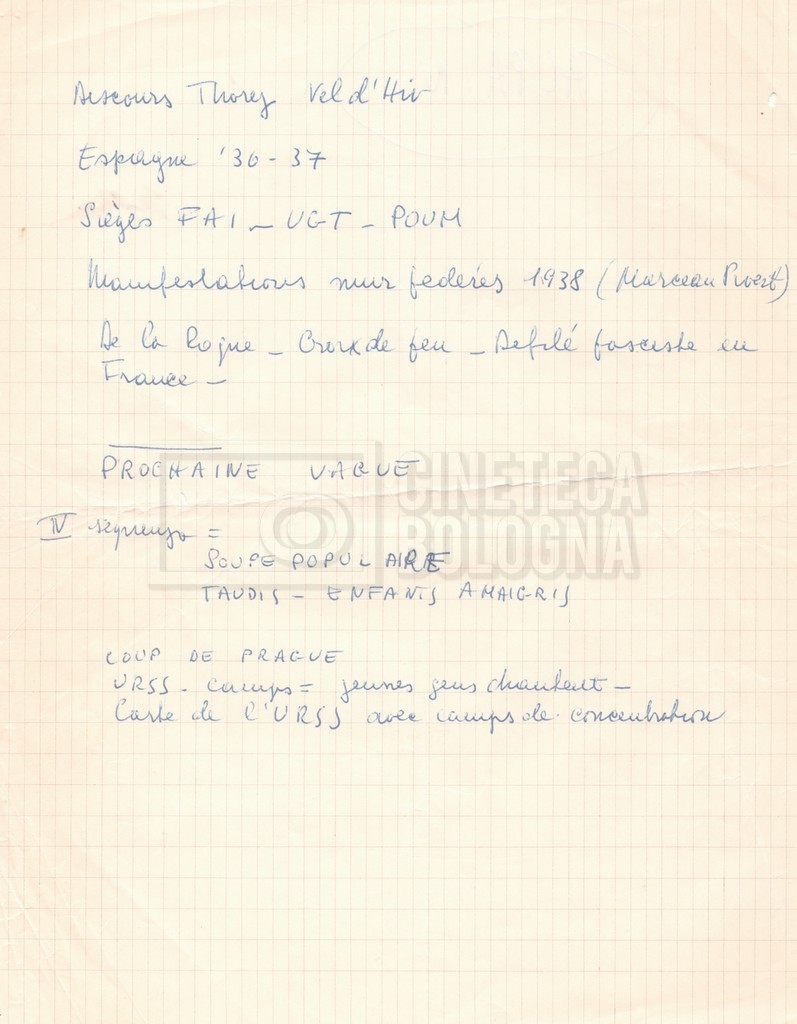 Discours Thorez Vel d'Hiv
Espagne '36-37
Sièges FAI - UGT - POUM
Manifestations mur federés 1938 (Marceau Pivert)
De la Roque - Croix de feu - Defilé fasciste en
France -
PROCHAINE VAGUE
CINETECA
BOLOGNA
IV sequenza =
SOUPE POPULAIRE
TAUDIS - ENFANTS AMAIGRIS
COUP DE PRAGUE
URSS - camps = jeunes gens chantent -
Carte de l'URSS avec camps de concentration